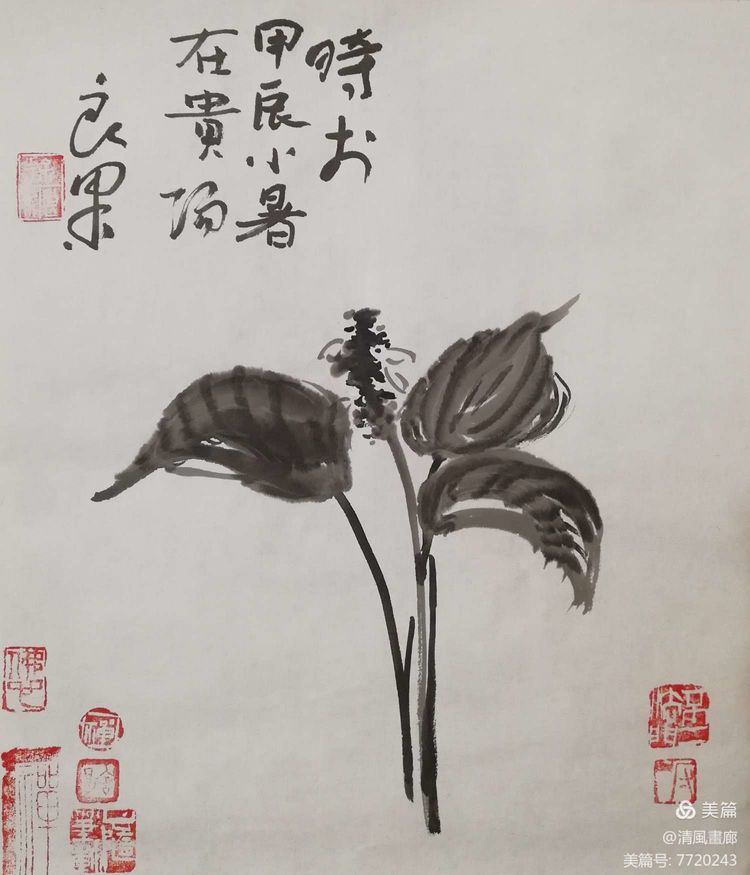 時於
甲辰小暑
在貴陽
良果
禪
美篇
@清風畫廊
美篇号: 7720243